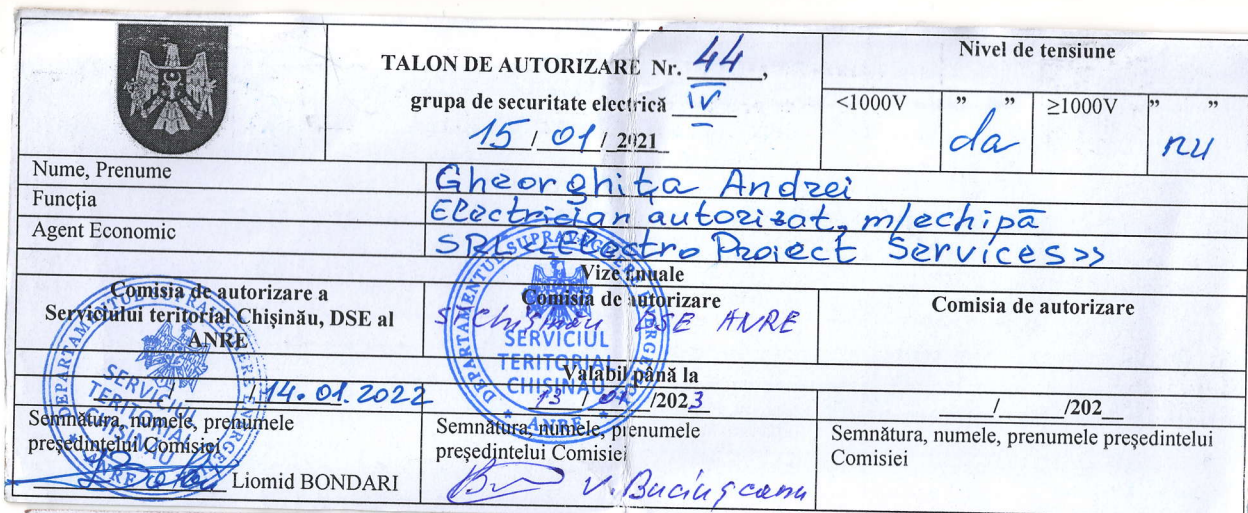 TALON DE AUTORIZARE Nr. 44,
grupa de securitate electrică IV
15 / 01 / 2021
Nivel de tensiune
<1000V " da " ≥1000V " nu "
Nume, Prenume Gheorghița Andrei
Funcția Electrician autorizat, m/echipă
Agent Economic SRL <<Electro Proiect Services>>
Vize anuale
Comisia de autorizare a
Serviciului teritorial Chișinău, DSE al
ANRE
Comisia de autorizare
S Chișinău DSE ANRE
Comisia de autorizare
Valabil până la
14.01.2022
13 / 01 /2023
/ /202
Semnătura, numele, prenumele
președintelui Comisiei
Liomid BONDARI
Semnătura, numele, prenumele
președintelui Comisiei
V. Buciușcanu
Semnătura, numele, prenumele președintelui
Comisiei
SERVICIUL
TERITORIAL
CHIȘINĂU
ANRE
SERVICIUL
TERITORIAL
CHIȘINĂU
ANRE